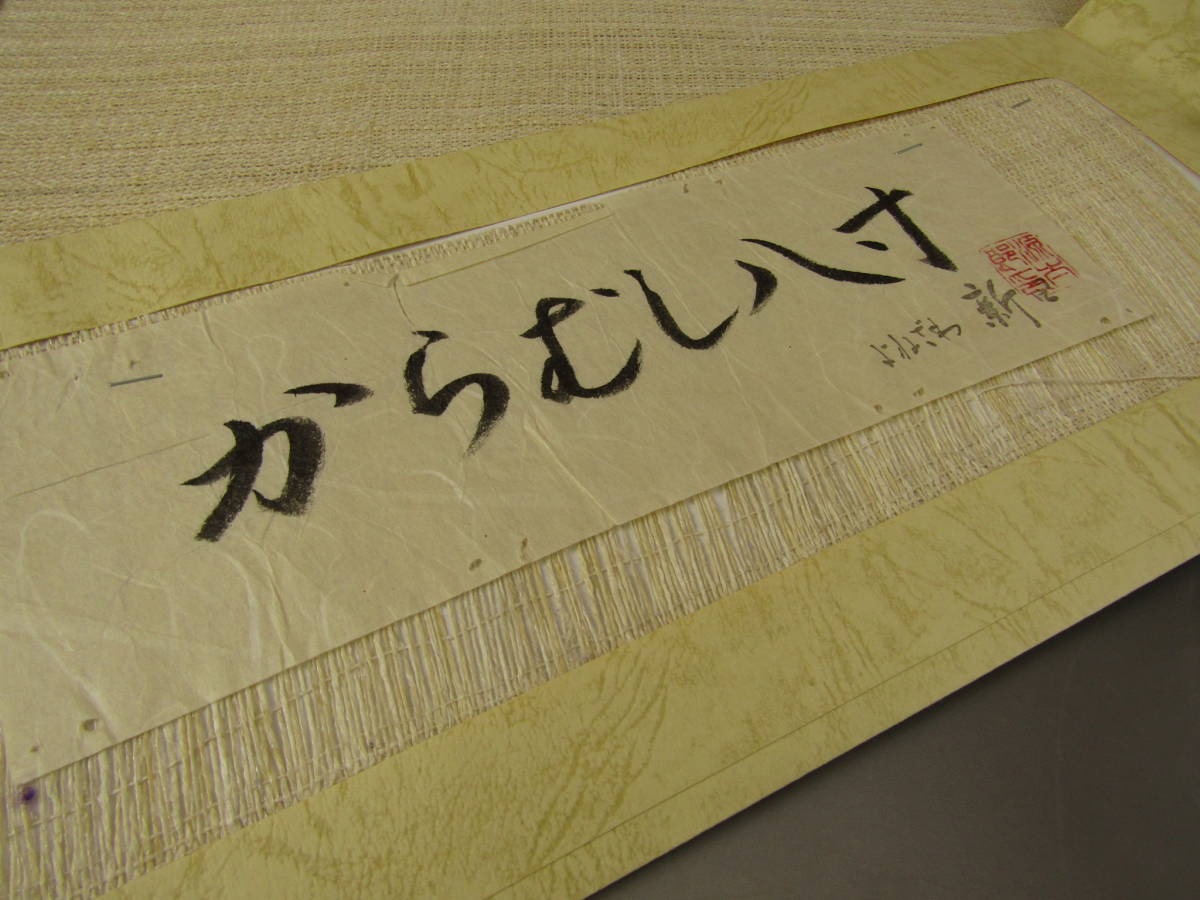 からむし八寸
よねざわ 新